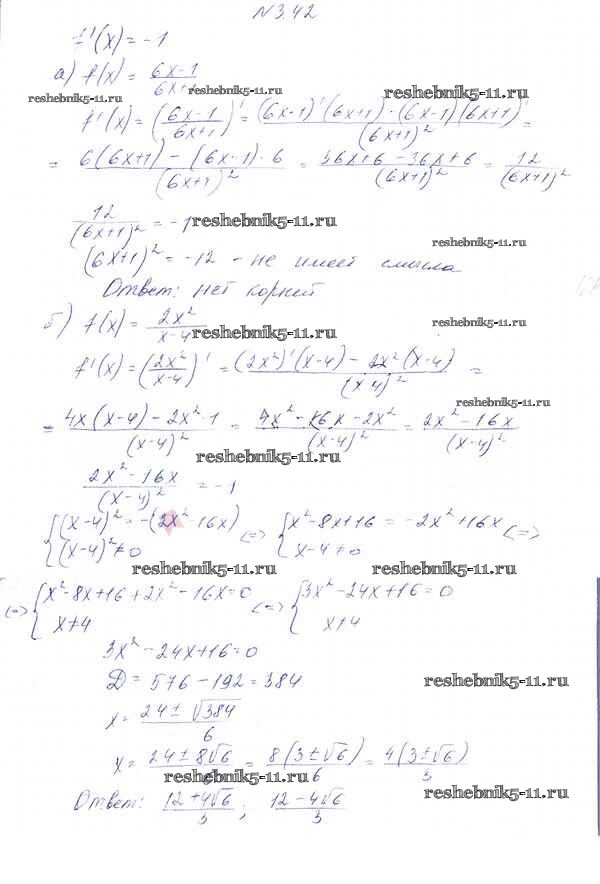 N 3.42
f'(x) = -1
а) f(x) = (6x-1)/(6x+1)
reshebnik5-11.ru reshebnik5-11.ru reshebnik5-11.ru
f'(x) = ((6x-1)/(6x+1))' = ((6x-1)'(6x+1) - (6x-1)(6x+1)')/(6x+1)² =
= (6(6x+1) - (6x-1)·6)/(6x+1)² = (36x+6-36x+6)/(6x+1)² = 12/(6x+1)²
12/(6x+1)² = -1 reshebnik5-11.ru
reshebnik5-11.ru
(6x+1)² = -12 - не имеет смысла
Ответ: нет корней
б) f(x) = 2x²/(x-4) reshebnik5-11.ru reshebnik5-11.ru
f'(x) = (2x²/(x-4))' = ((2x²)'(x-4) - 2x²(x-4)')/(x-4)² =
reshebnik5-11.ru
= (4x(x-4) - 2x²·1)/(x-4)² = (4x²-16x-2x²)/(x-4)² = (2x²-16x)/(x-4)²
reshebnik5-11.ru
(2x²-16x)/(x-4)² = -1
{(x-4)² = -(2x²-16x) <=> {x²-8x+16 = -2x²+16x <=>
{(x-4)² ≠ 0 {x-4 ≠ 0
reshebnik5-11.ru reshebnik5-11.ru
<=> {x²-8x+16+2x²-16x=0 <=> {3x²-24x+16=0
{x≠4 {x≠4
3x²-24x+16=0
D = 576-192=384 reshebnik5-11.ru
x = (24±√384)/6
x = (24±8√6)/6 = 8(3±√6)/6 = 4(3±√6)/3
reshebnik5-11.ru
Ответ: (12+4√6)/3; (12-4√6)/3 reshebnik5-11.ru